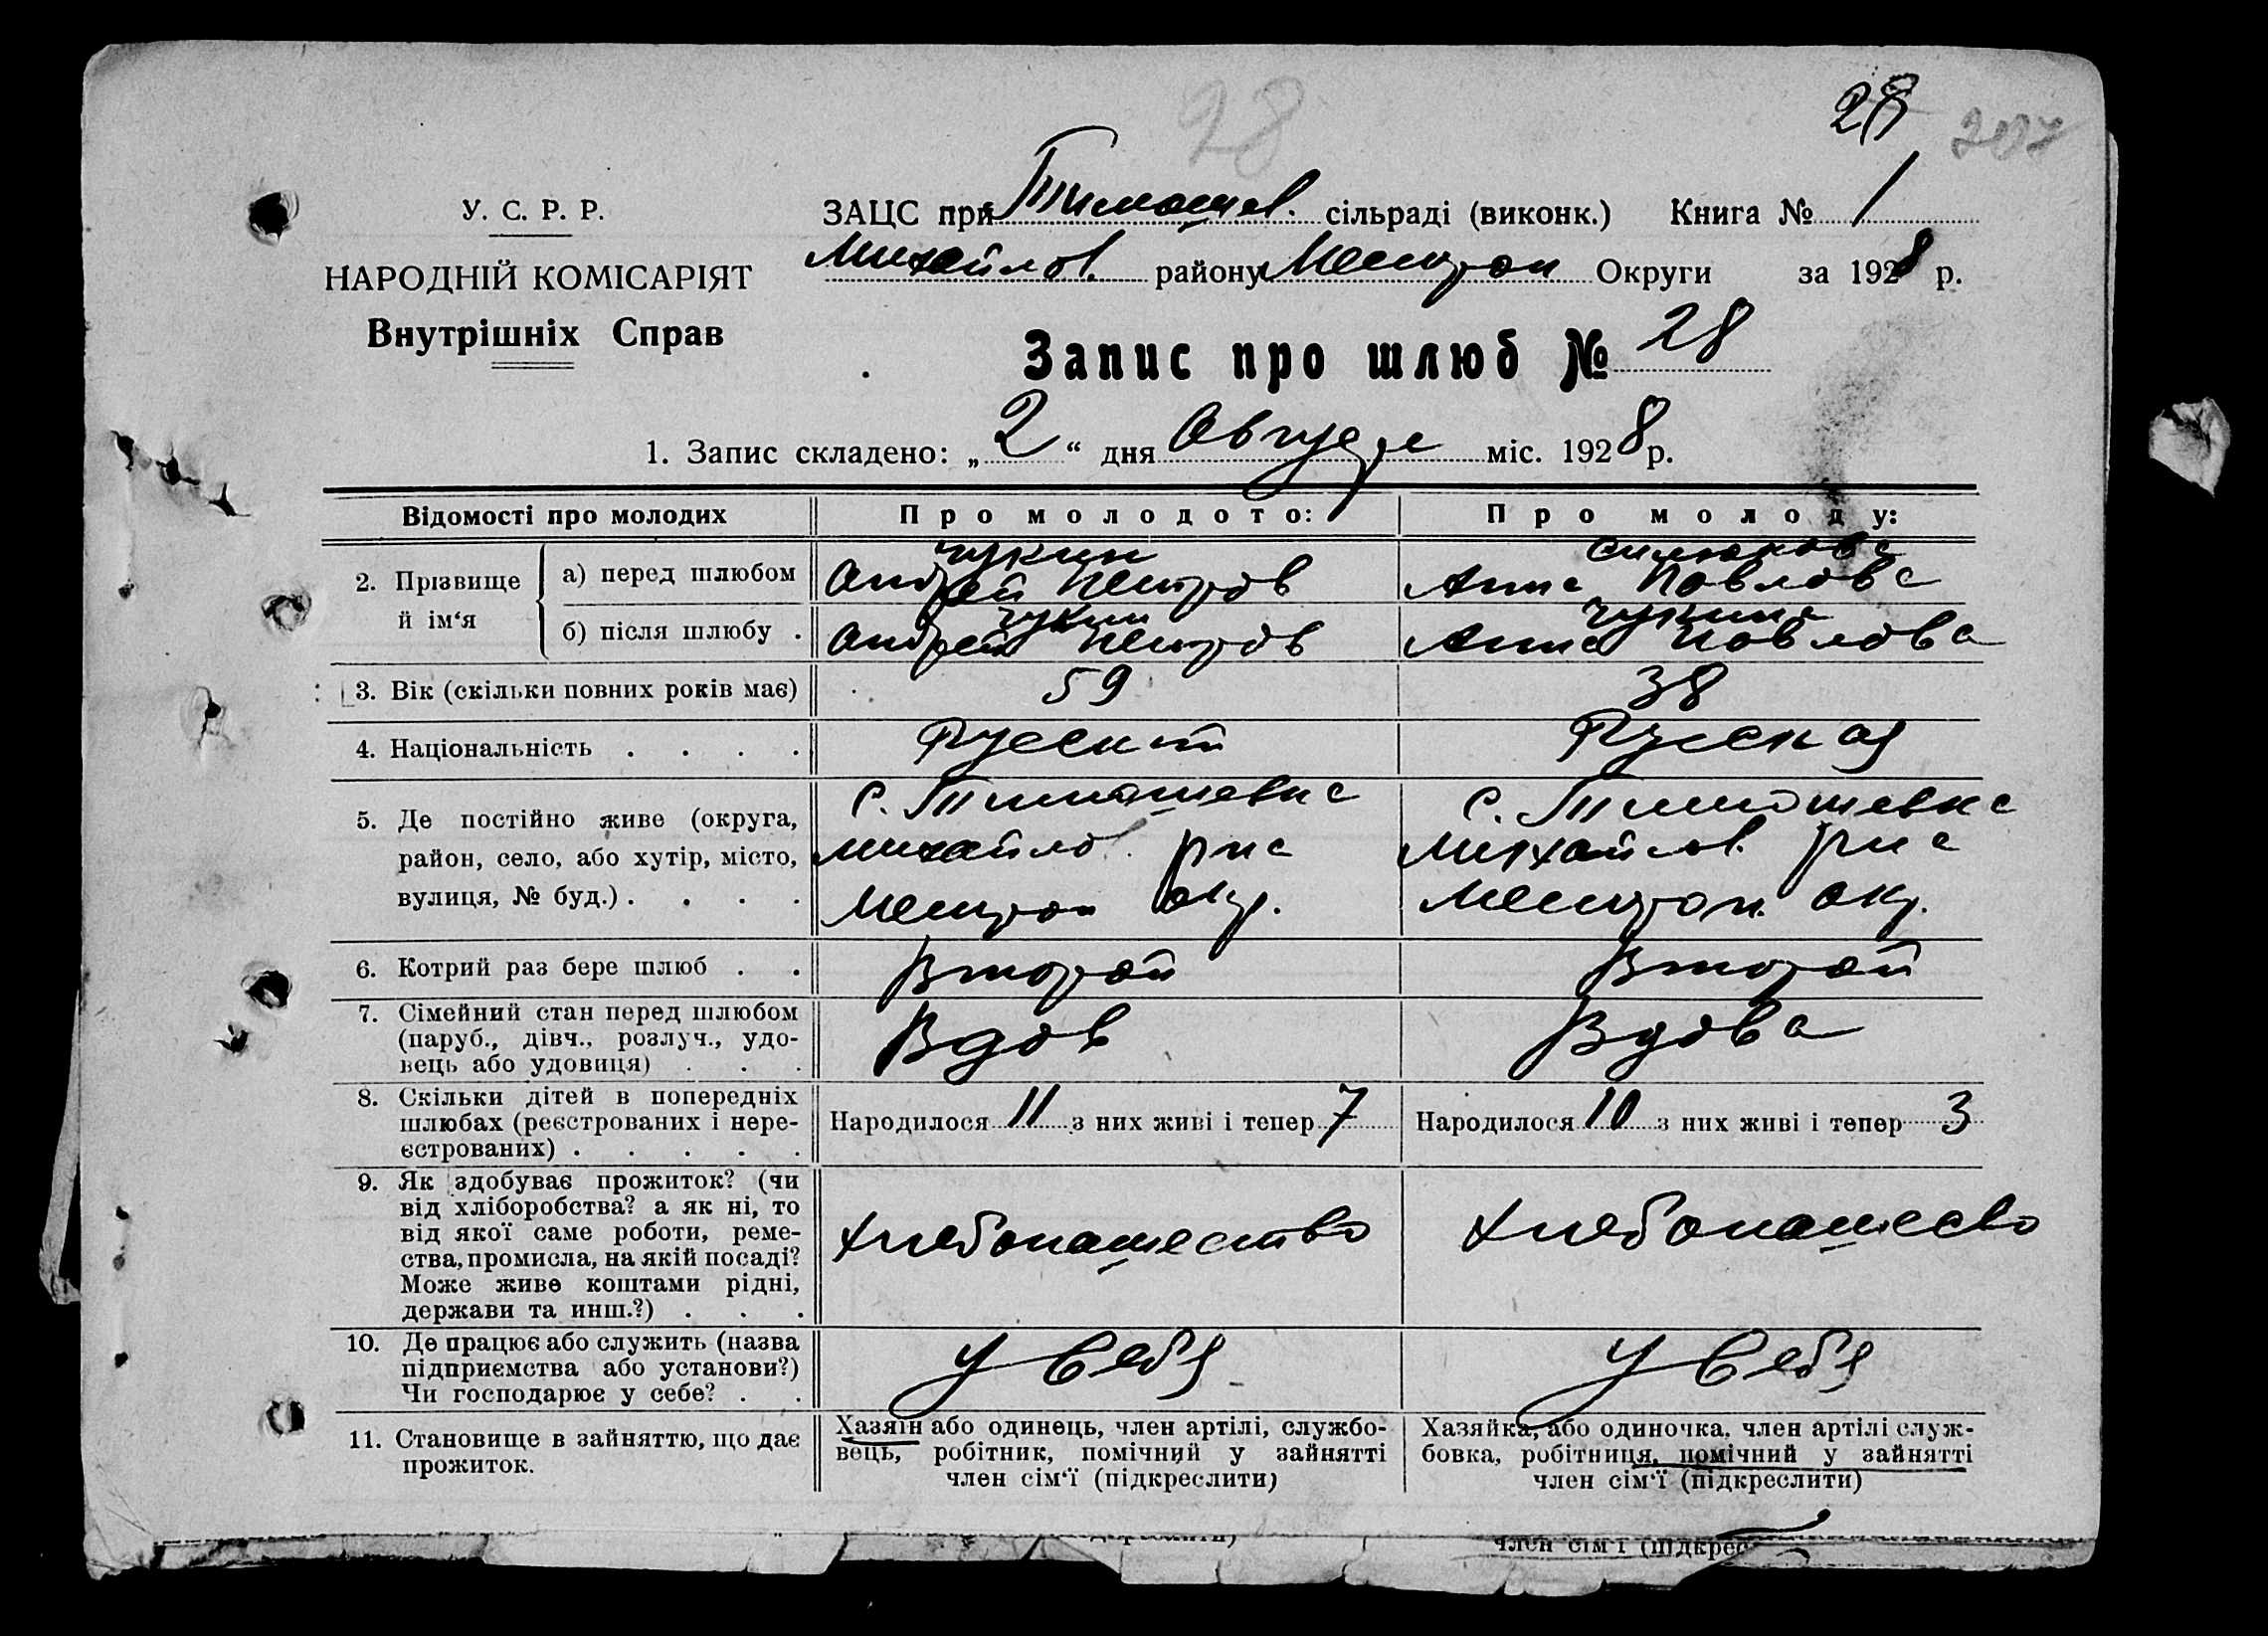 28
28
207
У. С. Р. Р.
НАРОДНІЙ КОМІСАРІЯТ
Внутрішніх Справ
ЗАЦС при Тимошев. сільраді (виконк.) Книга № 1
Михайлов. району Мелитоп Округи за 1928 р.
Запис про шлюб № 28
1. Запис складено: „2“ дня Августа міс. 1928 р.
Відомості про молодих
Про молодого:
Про молоду:
2. Прізвище й ім‘я
а) перед шлюбом
Чукин
Андрей Петров
Анна Повлова
б) після шлюбу .
Чукин
Андрей Петров
Чукина
Анна Повлова
3. Вік (скільки повних років має)
59
38
4. Національність . . . .
Русский
Русская
5. Де постійно живе (округа,
район, село, або хутір, місто,
вулиця, № буд.) . . . .
с. Тимошевка
Михайло. рна
Мелитоп окр.
с. Тимошевка
Михайлов. рна
Мелитоп. окр.
6. Котрий раз бере шлюб . .
Второй
Второй
7. Сімейний стан перед шлюбом
(паруб., дівч., розлуч., удо-
вець або удовиця) . . .
Вдов
Вдова
8. Скільки дітей в попередніх
шлюбах (реєстрованих і нере-
єстрованих) . . . . .
Народилося 11 з них живі і тепер 7
Народилося 10 з них живі і тепер 3
9. Як здобуває прожиток? (чи
від хліборобства? а як ні, то
від якої саме роботи, реме-
ства, промисла, на якій посаді?
Може живе коштами рідні,
держави та инш.?) . . .
Хлебопашество
Хлебопашесво
10. Де працює або служить (назва
підприємства або установи?)
Чи господарює у себе? . .
У себя
У себя
11. Становище в зайняттю, що дає
прожиток.
Хазяїн або одинець, член артілі, службо-
вець, робітник, помічний у зайнятті
член сім‘ї (підкреслити)
Хазяйка, або одиночка, член артілі служ-
бовка, робітниця, помічний у зайнятті
член сім‘ї (підкреслити)
член сім‘ї (підкрес